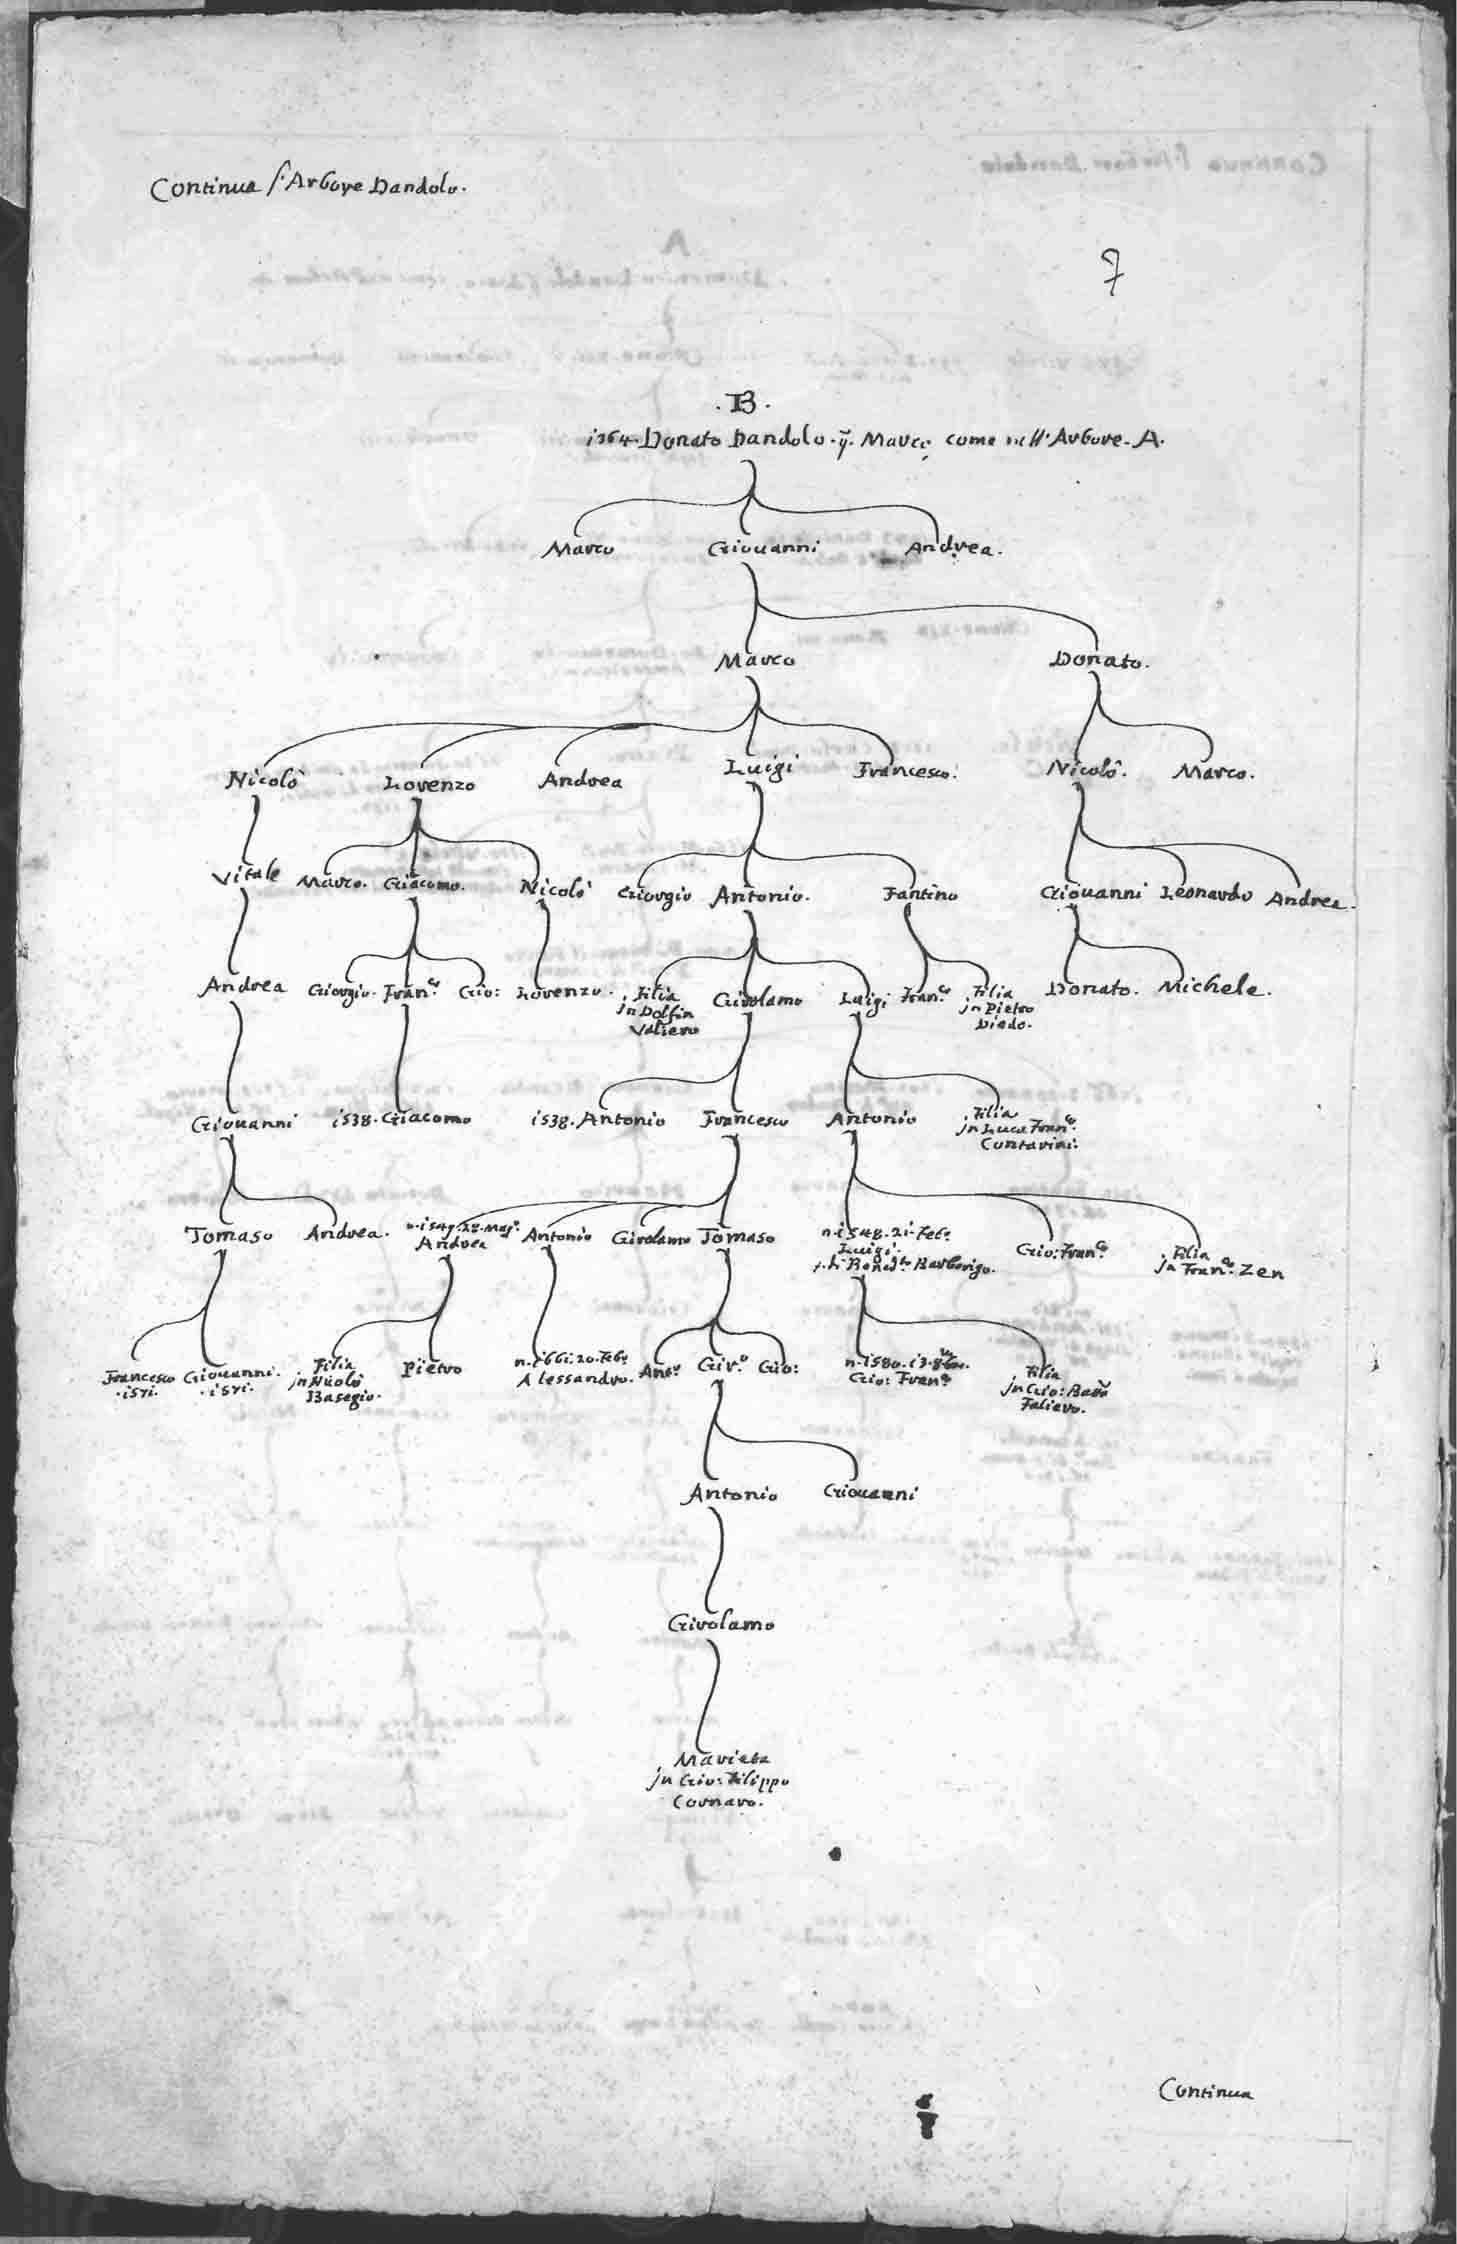 Continua l'Arbore Dandolo.
7
.B.
1364. Donato Dandolo. q. Marco, come nell'Arbore. A.
Marco Giouanni Andrea.
Marco Donato.
Nicolò Lorenzo Andrea Luigi Francesco. Nicolò. Marco.
Vitale Marco. Giacomo. Nicolò Giorgio Antonio. Fantino Giouanni Leonardo Andrea.
Andrea Giorgio. Fran.co Gio: Lorenzo. Filia Girolamo Luigi Fran.co Filia Donato. Michele.
jn Dolfin jn Pietro
Valiero Diedo.
Giouanni 1538. Giacomo 1538. Antonio Francesco Antonio Filia
jn Luca Fran.co
Contarini.
Tomaso Andrea. n. 1547. 28. Mag.o Antonio Girolamo Tomaso n. 1548. 21. Feb.o Gio: Fran.co Filia
Andrea Luigi. jn Fran.co Zen
Bened.to Barbarigo.
Francesco Giouanni. Filia Pietro n. 1661. 20. Feb.o Ant.o Gir.o Gio: n. 1580. 13. 8bre. Filia
.1571. .1571. jn Nicolò Alessandro. Gio: Fran.co jn Gio: Batta
Basegio. Faliero.
Antonio Giouanni
Girolamo
Marieta
jn Gio: Filippo
Cornaro.
Continua